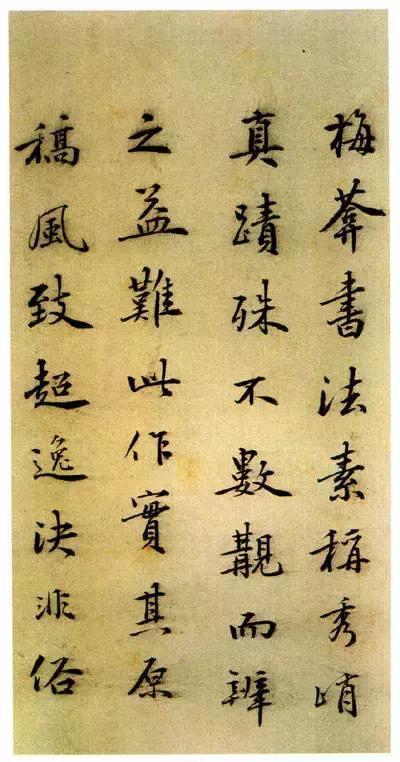 梅葊書法素稱秀峭
真蹟殊不數覯而辨
之益難此作實其原
稿風致超逸決非俗